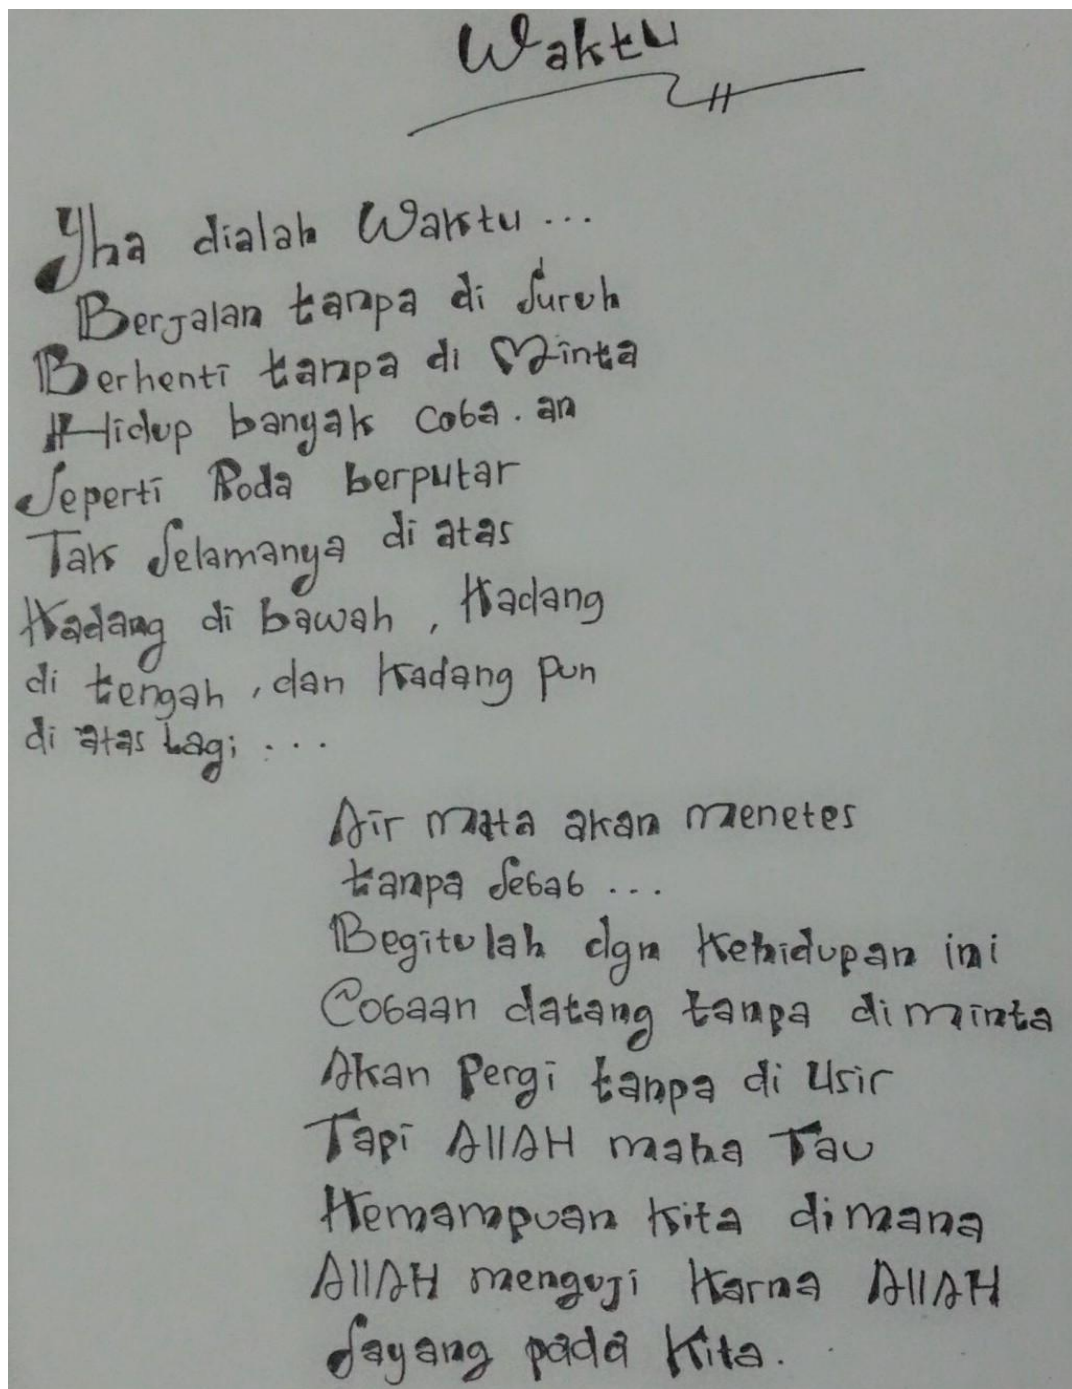 Waktu
Yha dialah Waktu ...
Berjalan tanpa di suruh
Berhenti tanpa di Minta
Hidup banyak coba.an
Seperti Roda berputar
Tak Selamanya di atas
Kadang di bawah, Kadang
di tengah, dan kadang pun
di atas Lagi ...
Air mata akan menetes
tanpa sebab ...
Begitulah dgn kehidupan ini
Cobaan datang tanpa diminta
Akan Pergi tanpa di Usir
Tapi AllAH maha Tau
Kemampuan kita dimana
AllAH menguji Karna AllAH
Sayang pada Kita.